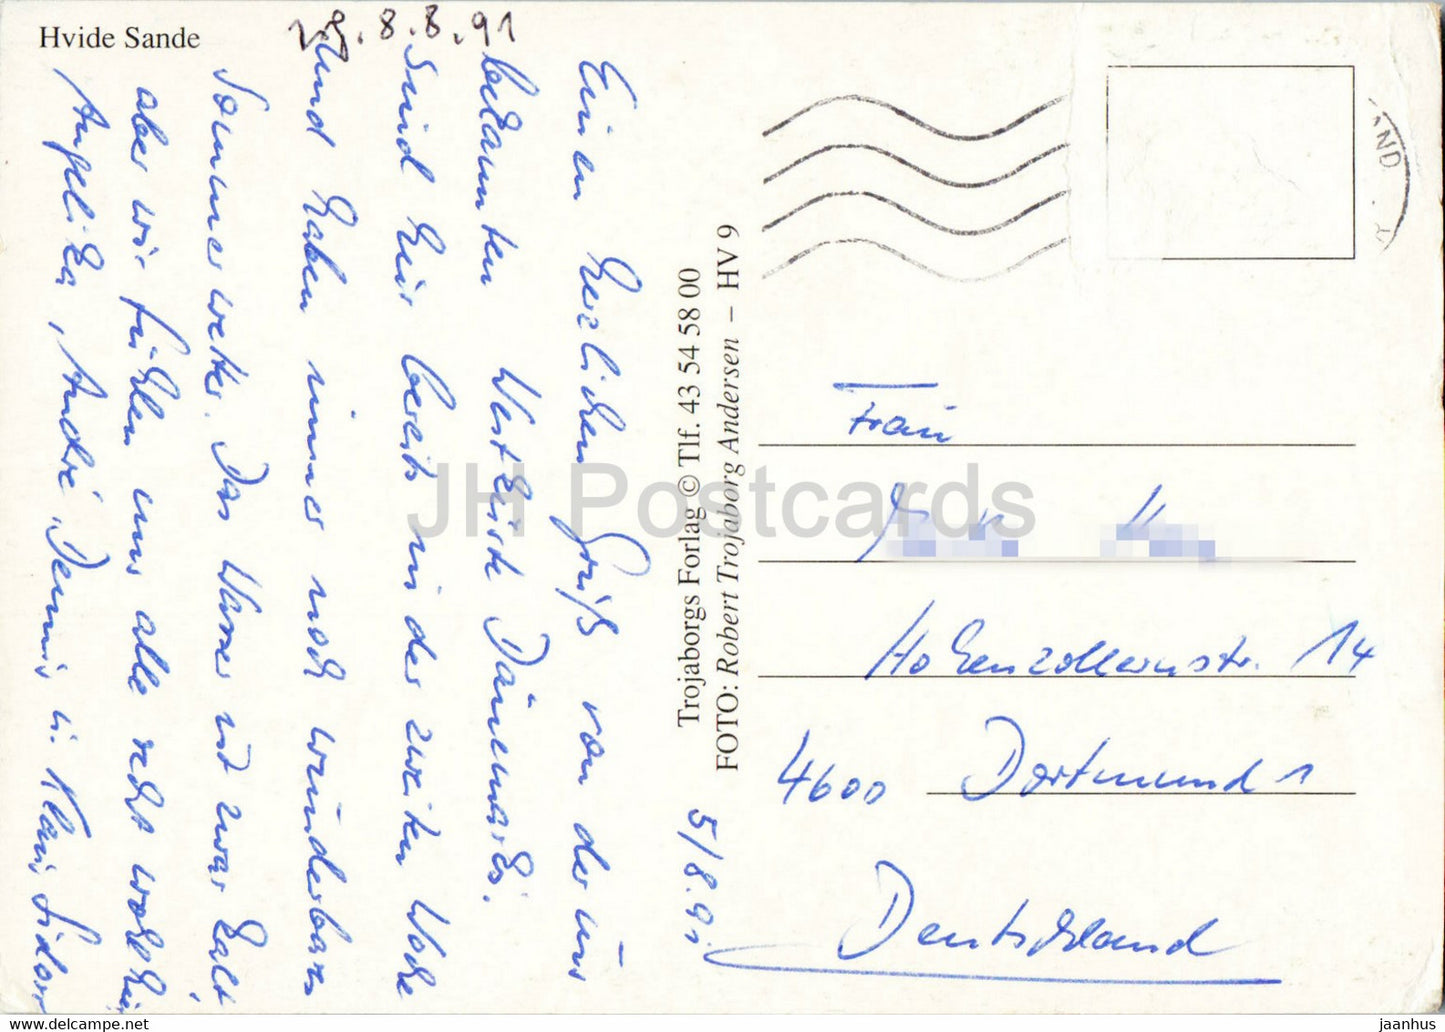 Hvide Sande
8.8.91
Einen herzlichen Gruß von der uns
bekannten Westküste Dänemarks.
Sind hier bereits in der zweiten Woche
und haben immer noch wunderbares
Sommerwetter. Das Wasser ist zwar kalt,
aber wir fühlen uns alle recht wohl hier
Angelika, André, Dennis u. Klaus
Trojaborgs Forlag © Tlf. 43 54 58 00
FOTO: Robert Trojaborg Andersen – HV 9
5/8.91
AND
Frau
Hohenzollernstr. 14
4600 Dortmund 1
Deutschland
JH Postcards
andpa-cards.delcampe.net